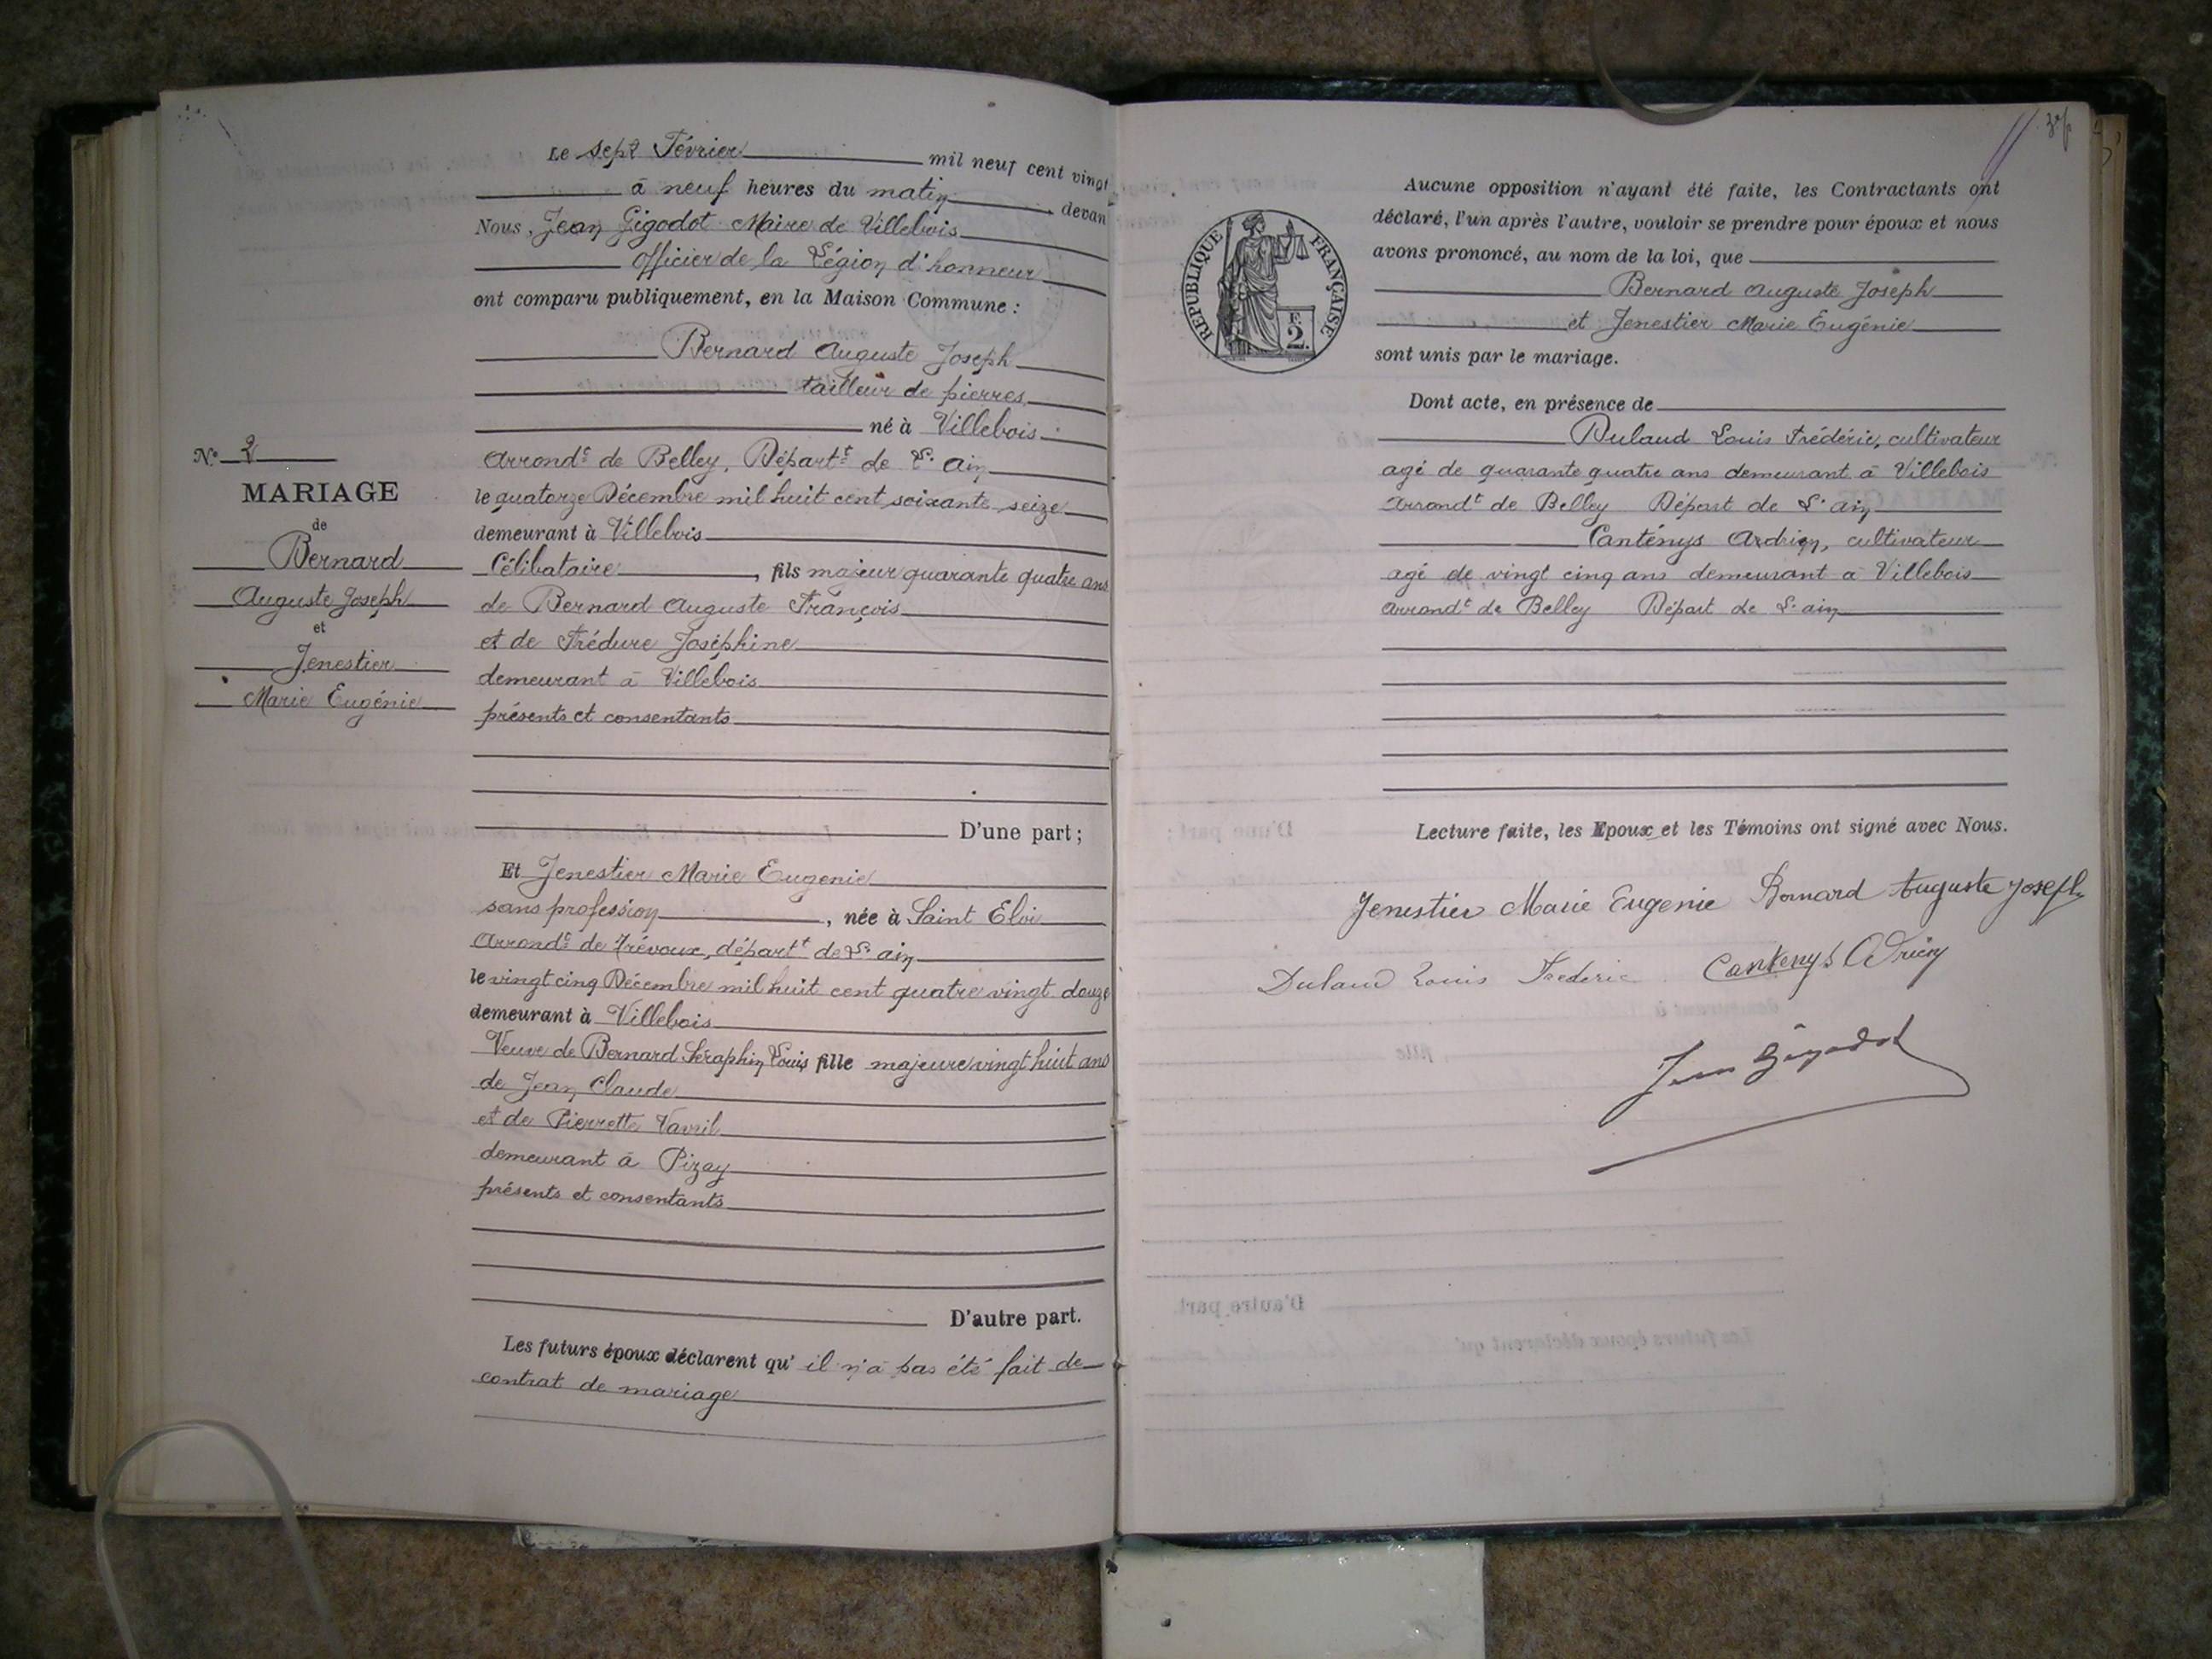 Le sept Février mil neuf cent vingt
à neuf heures du matin, devan
Nous, Jean Gigodot Maire de Villebois
officier de la Légion d'honneur
ont comparu publiquement, en la Maison Commune :
Bernard Auguste Joseph
tailleur de pierres
né à Villebois
Arrondt de Belley, Départt de L'ain
le quatorze Décembre mil huit cent soixante seize
demeurant à Villebois
Célibataire, fils majeur quarante quatre ans
de Bernard Auguste François
et de Trédure Joséphine
demeurant à Villebois
présents et consentants
D'une part ;
Et Jenestier Marie Eugenie
sans profession, née à Saint Eloi
Arrondt de Trévoux, départt de L'ain
le vingt cinq Décembre mil huit cent quatre vingt douze
demeurant à Villebois
Veuve de Bernard Séraphin Louis fille majeure vingt huit ans
de Jean Claude
et de Pierrette Vavril
demeurant à Pizay
présents et consentants
D'autre part.
Les futurs époux déclarent qu' il n'a pas été fait de
contrat de mariage
N° 2
MARIAGE
de
Bernard
Auguste Joseph
et
Jenestier
Marie Eugénie
RÉPUBLIQUE FRANÇAISE
F.
2.
Aucune opposition n'ayant été faite, les Contractants ont
déclaré, l'un après l'autre, vouloir se prendre pour époux et nous
avons prononcé, au nom de la loi, que
Bernard Auguste Joseph
et Jenestier Marie Eugénie
sont unis par le mariage.
Dont acte, en présence de
Dulaud Louis Frédéric, cultivateur
agé de quarante quatre ans demeurant à Villebois
arrondt de Belley Départ de L'ain
Canténys Adrien, cultivateur
agé de vingt cinq ans demeurant à Villebois
arrondt de Belley Départ de L'ain
Lecture faite, les Epoux et les Témoins ont signé avec Nous.
Jenestier Marie Eugenie Bernard Auguste Joseph
Dulaud Louis Frederic Cantenys Adrien
Jean Gigodot